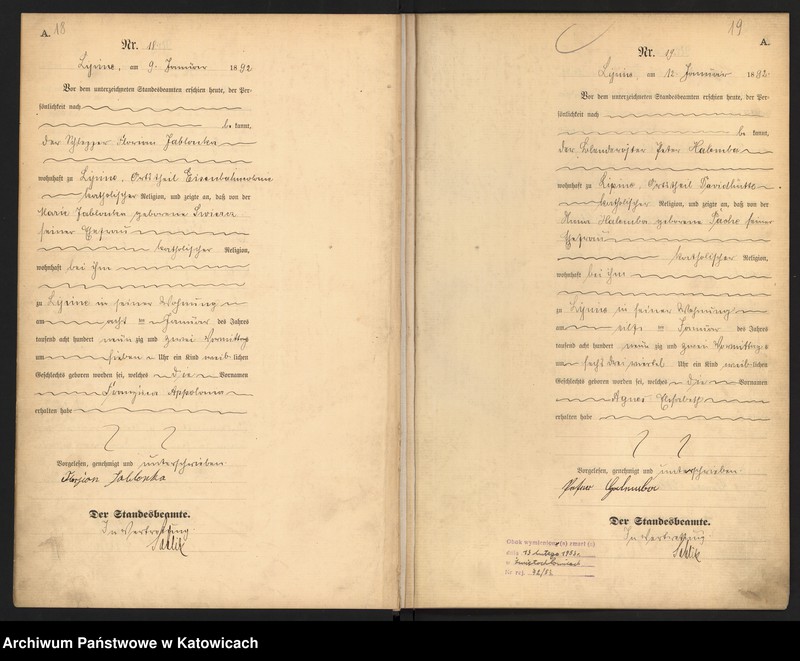 A. 18
Nr. 18
Lipine, am 9. Januar 1892
Vor dem unterzeichneten Standesbeamten erschien heute, der Per-
sönlichkeit nach
be kannt,
der Schlepper Florian Jablonka
wohnhaft zu Lipine, Ortstheil
katholischer Religion, und zeigte an, daß von der
Marie Jablonka geborene
seiner Ehefrau
katholischer Religion,
wohnhaft bei ihm
zu Lipine in seiner Wohnung
am acht ten Januar des Jahres
tausend acht hundert neun zig und zwei Vormittags
um sieben Uhr ein Kind weib lichen
Geschlechts geboren worden sei, welches die Vornamen
Franziska
erhalten habe
Vorgelesen, genehmigt und unterschrieben
Florjan Jablonka
Der Standesbeamte.
In Vertretung
19
A.
Nr. 19
Lipine, am 12 Januar 1892.
Vor dem unterzeichneten Standesbeamten erschien heute, der Per-
sönlichkeit nach
be kannt,
der Peter Halemba
wohnhaft zu Lipine, Ortstheil Davidhütte
katholischer Religion, und zeigte an, daß von der
Anna Halemba geborene seiner
Ehefrau
katholischer Religion,
wohnhaft bei ihm
zu Lipine in seiner Wohnung
am elf ten Januar des Jahres
tausend acht hundert neun zig und zwei Vormittags
um sechs drei viertel Uhr ein Kind weib lichen
Geschlechts geboren worden sei, welches die Vornamen
Agnes Elisabeth
erhalten habe
Vorgelesen, genehmigt und unterschrieben
Der Standesbeamte.
In Vertretung
dnia 13 lutego
Nr rej.
Archiwum Państwowe w Katowicach